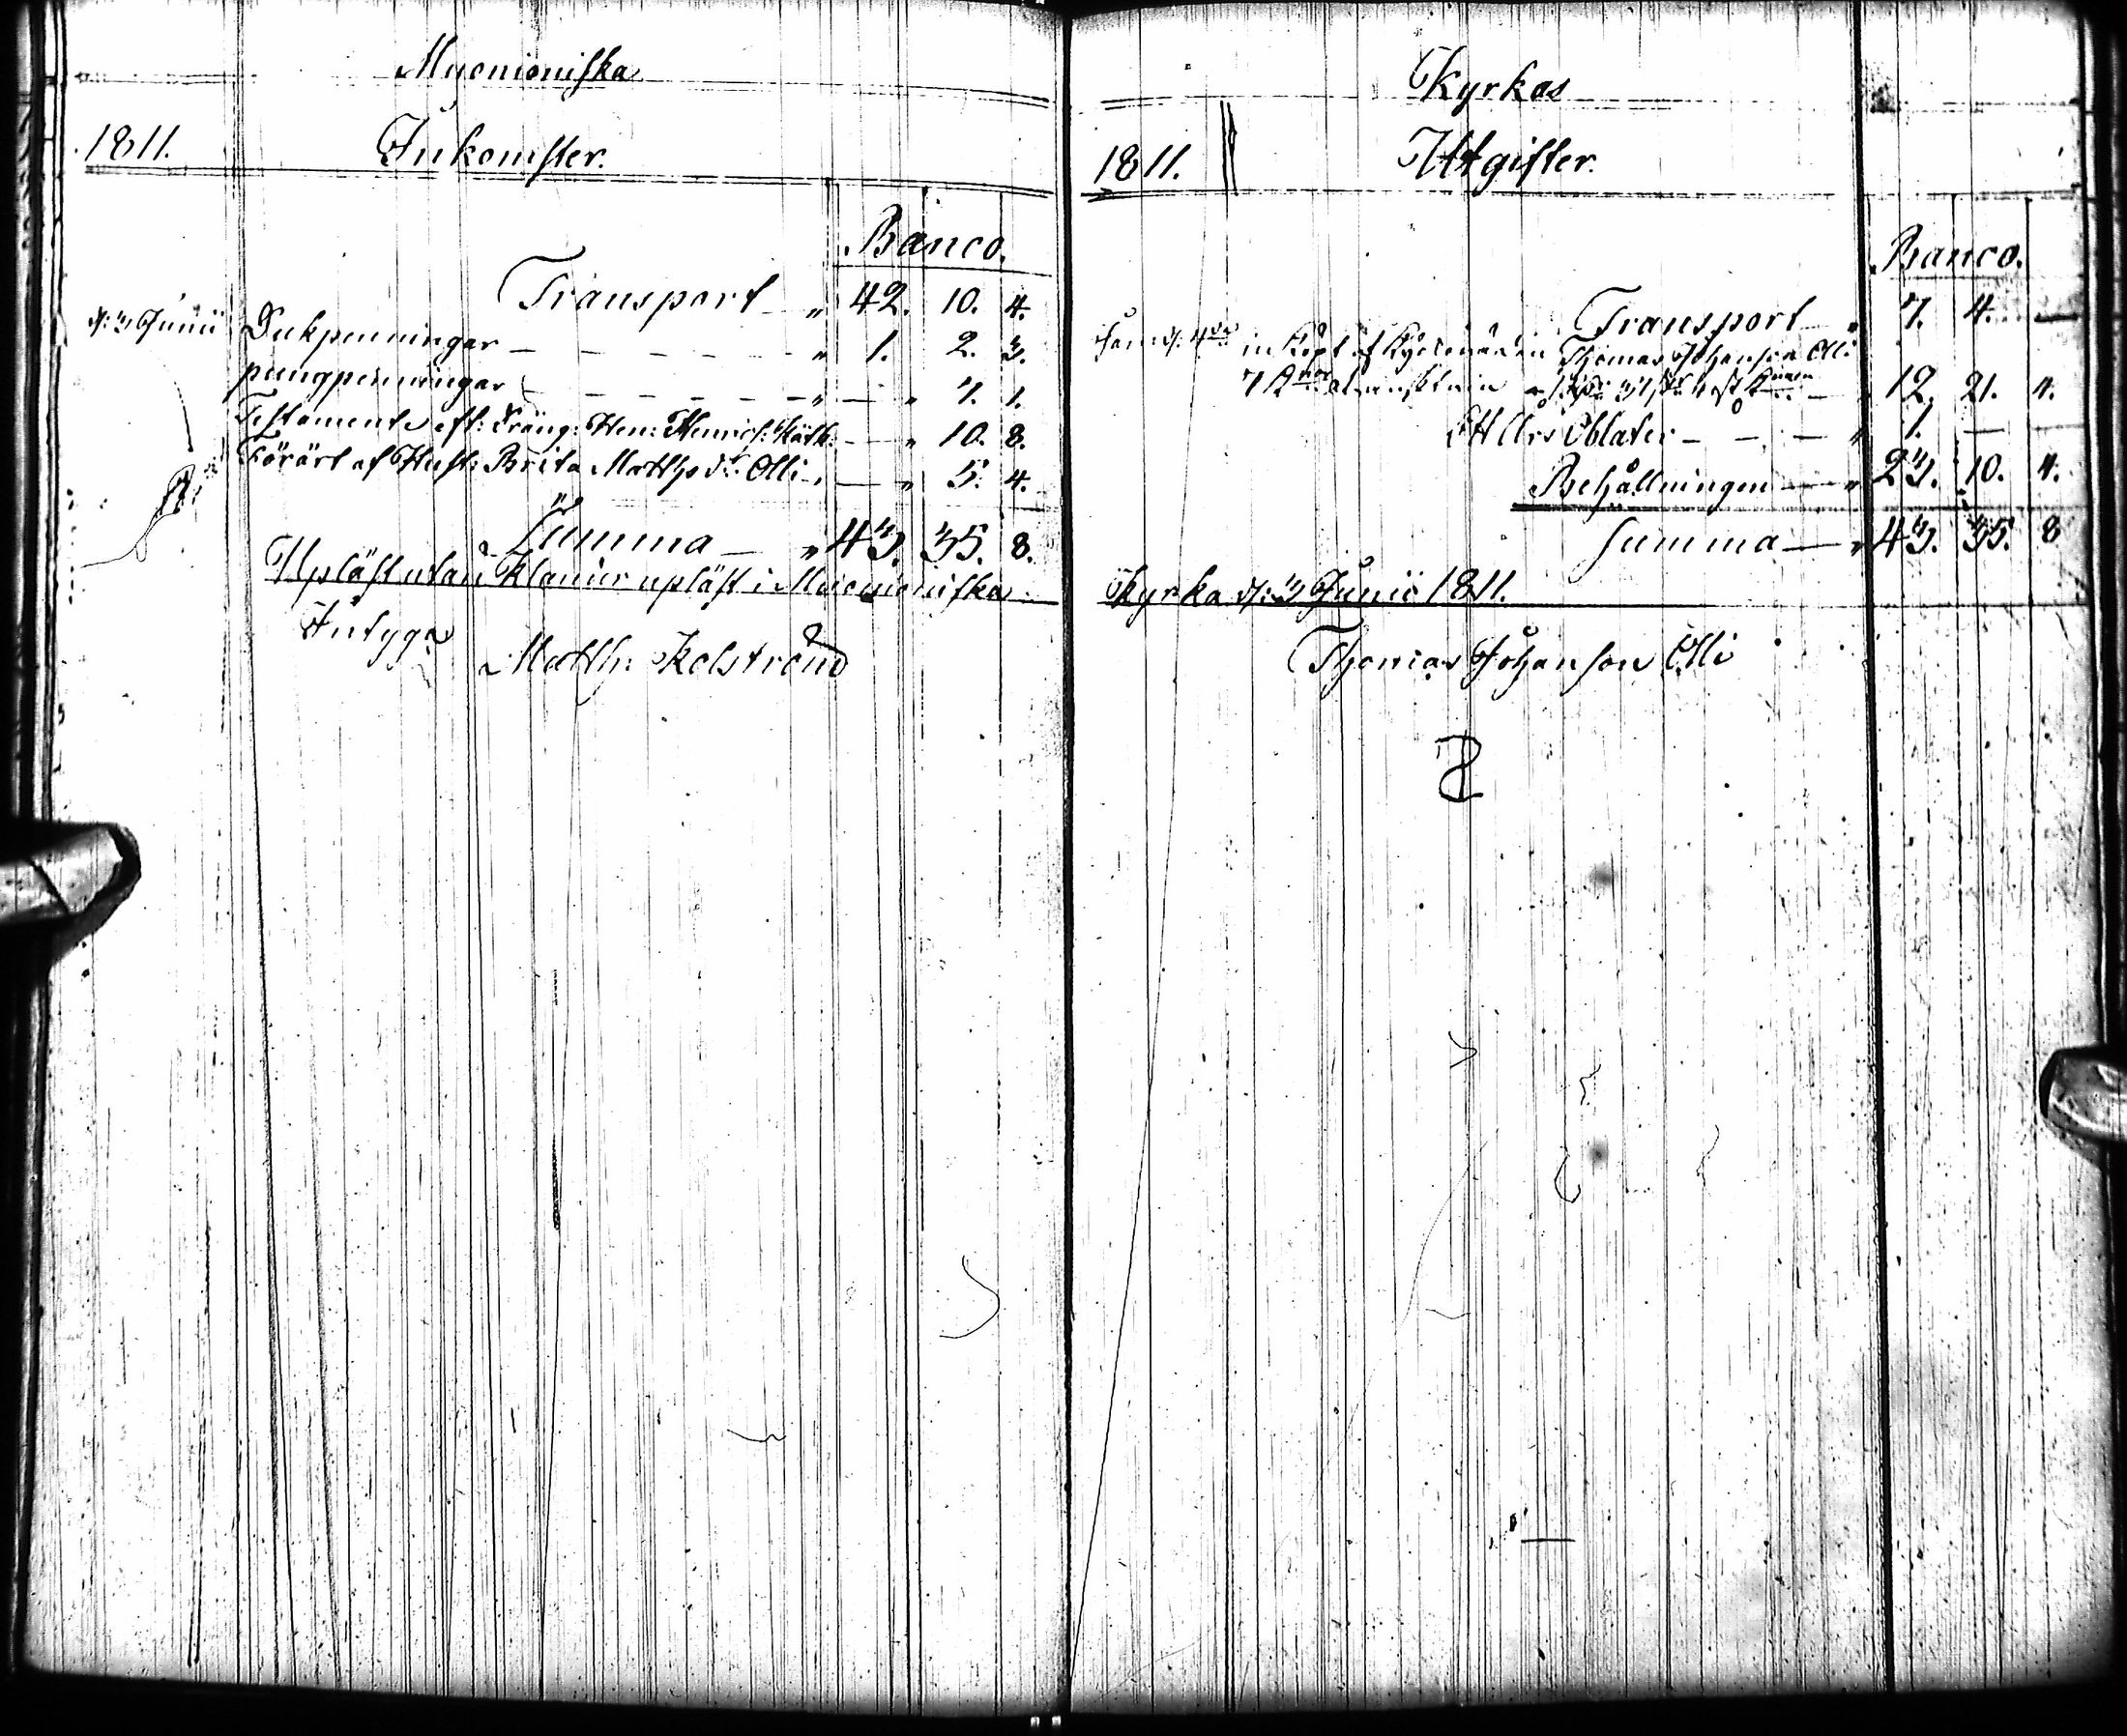 Muonioniska
1811. Inkomster.
Banco.
Transport — " 42. 10. 4.
d: 3 Junii Dukpenningar — — — — — " 1. 2. 3.
pungpenningar — — — — — " — " 7. 1.
Testamente eft: Dräng: Hen: Henrics: — " 10. 8.
Förärt af Hust: Brita Matths dr Olli — — " 5. 4.
Summa — " 43. 35. 8.
Upläst utan klander upläst i Muonioniska
Intyga
Matth: Kolström
Kyrkas
1811. Utgifter.
Banco.
Transport " 7. 4. —
inköpt af Kyrkovärden Thomas Johanson Olli
7 12. 21. 4.
Ett Års Oblater — — — " 1. — —
Behållningen — " 23. 10. 4.
Summa — " 43. 35. 8
Kyrka d: 3 Junii 1811.
Thomas Johanson Olli